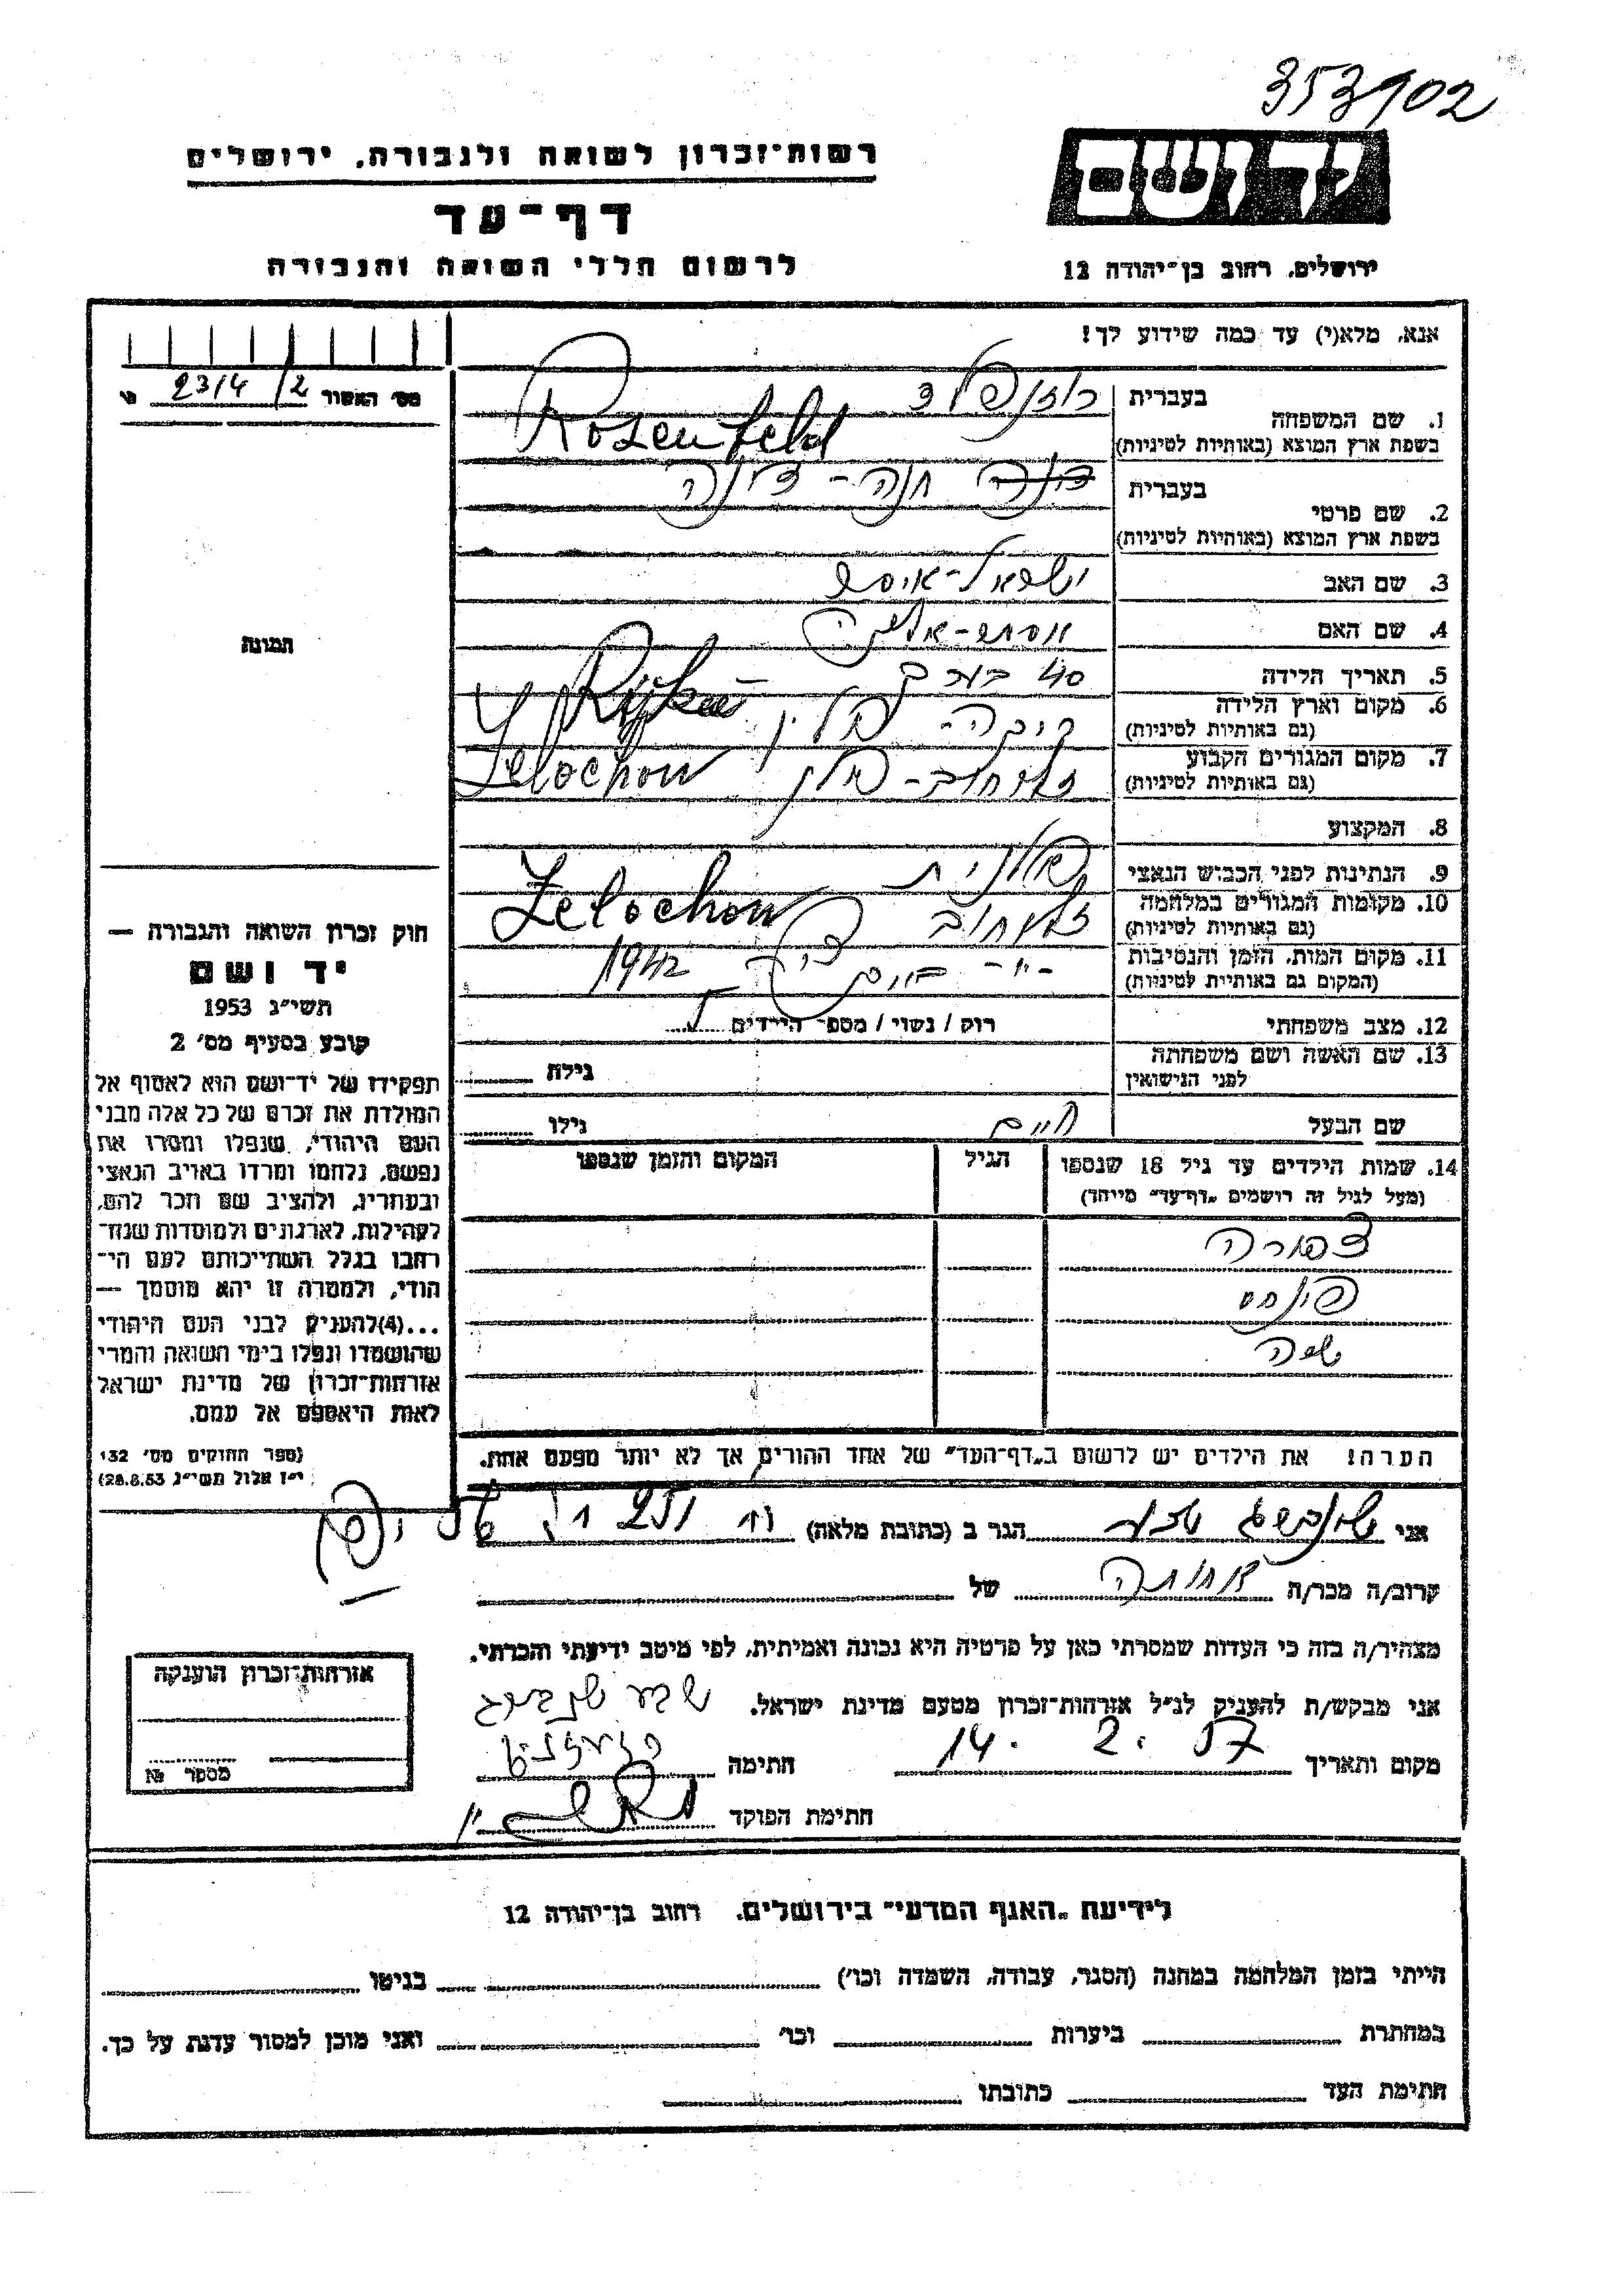 353902
רשות־זכרון לשואה ולגבורה, ירושלים
יד ושם
דף־עד
לרשום חללי השואה והגבורה
ירושלים, רחוב בן־יהודה 12
אנא, מלא(י) עד כמה שידוע לך!
מס׳ האשור 2314/2
1. שם המשפחה
בעברית רוזנפלד
בשפת ארץ המוצא (באותיות לטיניות) Rosenfeld
2. שם פרטי
בעברית חנה - דינה
בשפת ארץ המוצא (באותיות לטיניות)
3. שם האב ישראל - איסר
4. שם האם אסתר -
5. תאריך הלידה 40 בערך
6. מקום וארץ הלידה
(גם באותיות לטיניות) ריקה - פולין
7. מקום המגורים הקבוע
(גם באותיות לטיניות) זלוחוב - פולין Zelochow
8. המקצוע
9. הנתינות לפני הכבוש הנאצי פולנית
10. מקומות המגורים במלחמה
(גם באותיות לטיניות) זלוחוב Zelochow
11. מקום המות, הזמן והנסיבות
(המקום גם באותיות לטיניות) - " - 1942
12. מצב משפחתי רוק / נשוי / מספר הילדים
13. שם האשה ושם משפחתה
לפני הנישואין גילה
שם הבעל חיים גילו
14. שמות הילדים עד גיל 18 שנספו
(מעל לגיל זה רושמים „דף־עד" מייחד)
הגיל
המקום והזמן שנספו
צפורה
פינחס
שרה
הערה! את הילדים יש לרשום ב„דף־העד" של אחד ההורים אך לא יותר מפעם אחת.
תמונה
חוק זכרון השואה והגבורה —
יד ושם
תשי״ג 1953
קובע בסעיף מס׳ 2
תפקידו של יד־ושם הוא לאסוף אל
המולדת את זכרם של כל אלה מבני
העם היהודי, שנפלו ומסרו את
נפשם, נלחמו ומרדו באויב הנאצי
ובעוזריו, ולהציב שם וזכר להם,
לקהילות, לארגונים ולמוסדות שנח־
רבו בגלל השתייכותם לעם הי־
הודי, ולמטרה זו יהא מוסמך —
...(4) להעניק לבני העם היהודי
שהושמדו ונפלו בימי השואה והמרי
אזרחות־זכרון של מדינת ישראל
לאות היאספם אל עמם.
(ספר החוקים מס׳ 132
י״ז אלול תשי״ג 28.8.53)
אני הגר ב (כתובת מלאה)
קרוב/ה מכר/ה של
מצהיר/ה בזה כי העדות שמסרתי כאן על פרטיה היא נכונה ואמיתית, לפי מיטב ידיעתי והכרתי.
אני מבקש/ת להעניק לנ״ל אזרחות־זכרון מטעם מדינת ישראל.
מקום ותאריך 14. 2. 57 חתימה
חתימת הפוקד
אזרחות־זכרון הוענקה
מספר №
לידיעת „האגף המדעי" בירושלים, רחוב בן־יהודה 12
הייתי בזמן המלחמה במחנה (הסגר, עבודה, השמדה וכו׳) בגיטו
במחתרת ביערות וכו׳ ואני מוכן למסור עדות על כך.
חתימת העד כתובתו